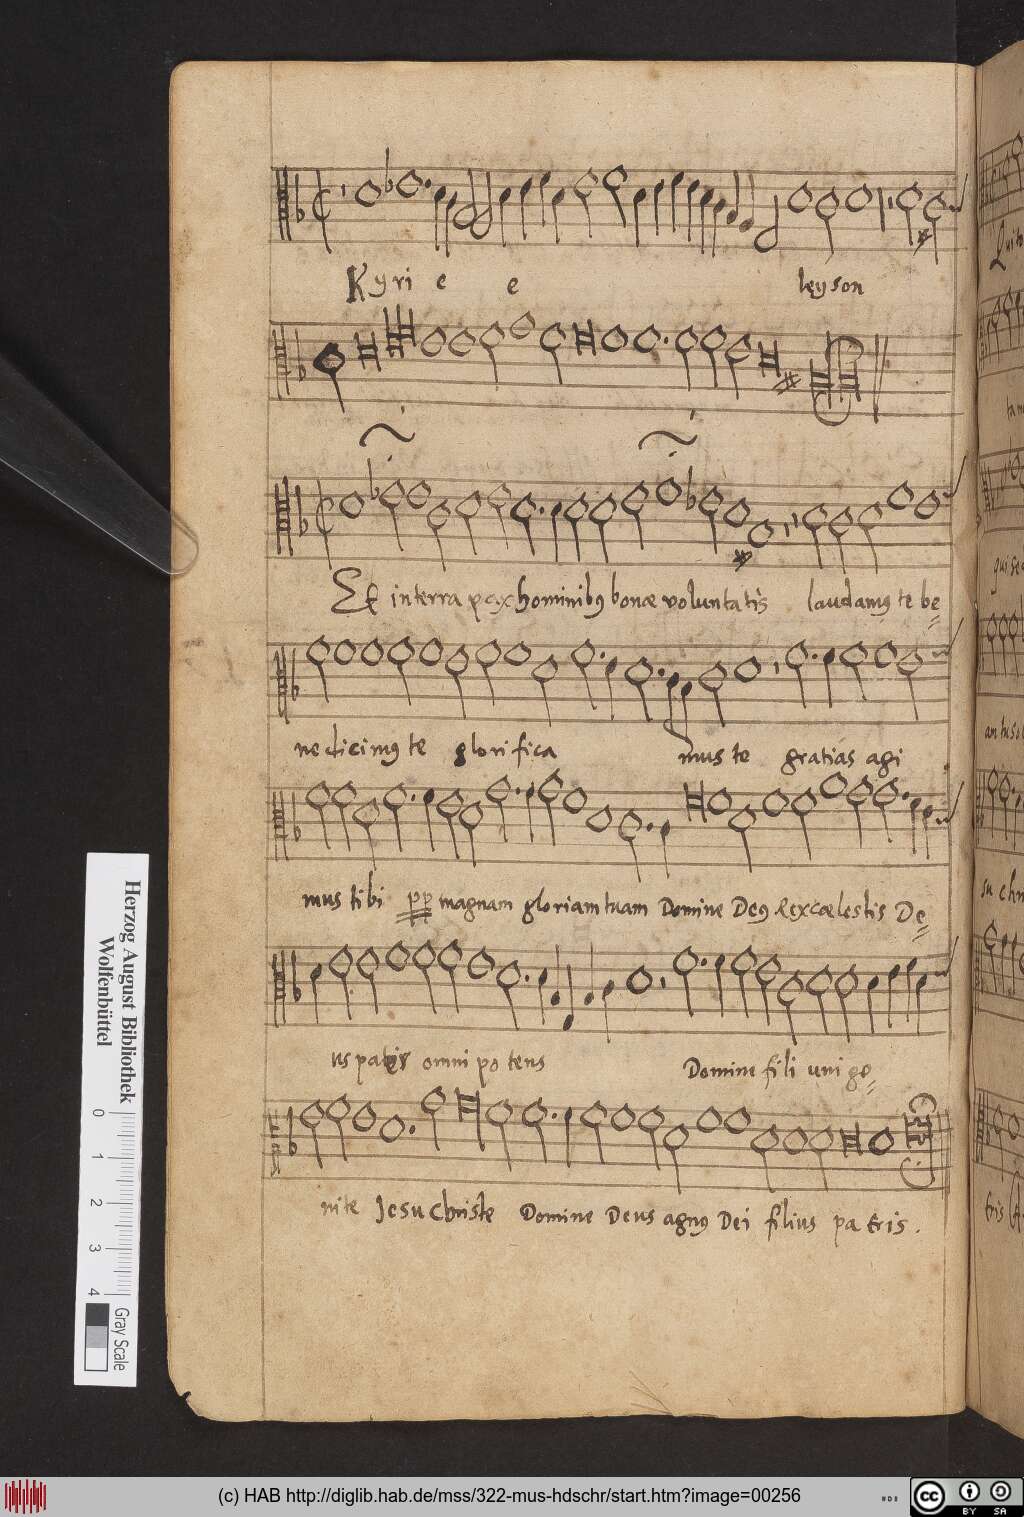 Kyri e e leyson
Et in terra pax hominibꝰ bonæ voluntatis laudamꝰ te be=
nedicimꝰ te glorifica mus te gratias agi
mus tibi pp magnam gloriam tuam Domine Deꝰ Rex cælestis De=
us patris omnipotens Domine fili unige=
nite Jesu Christe Domine Deus agnꝰ Dei filius patris.
Qui to
tam
qui sed
an tu so
su chri
tris
Herzog August Bibliothek
Wolfenbüttel
0 1 2 3 4
Gray Scale
(c) HAB http://diglib.hab.de/mss/322-mus-hdschr/start.htm?image=00256
cc BY SA